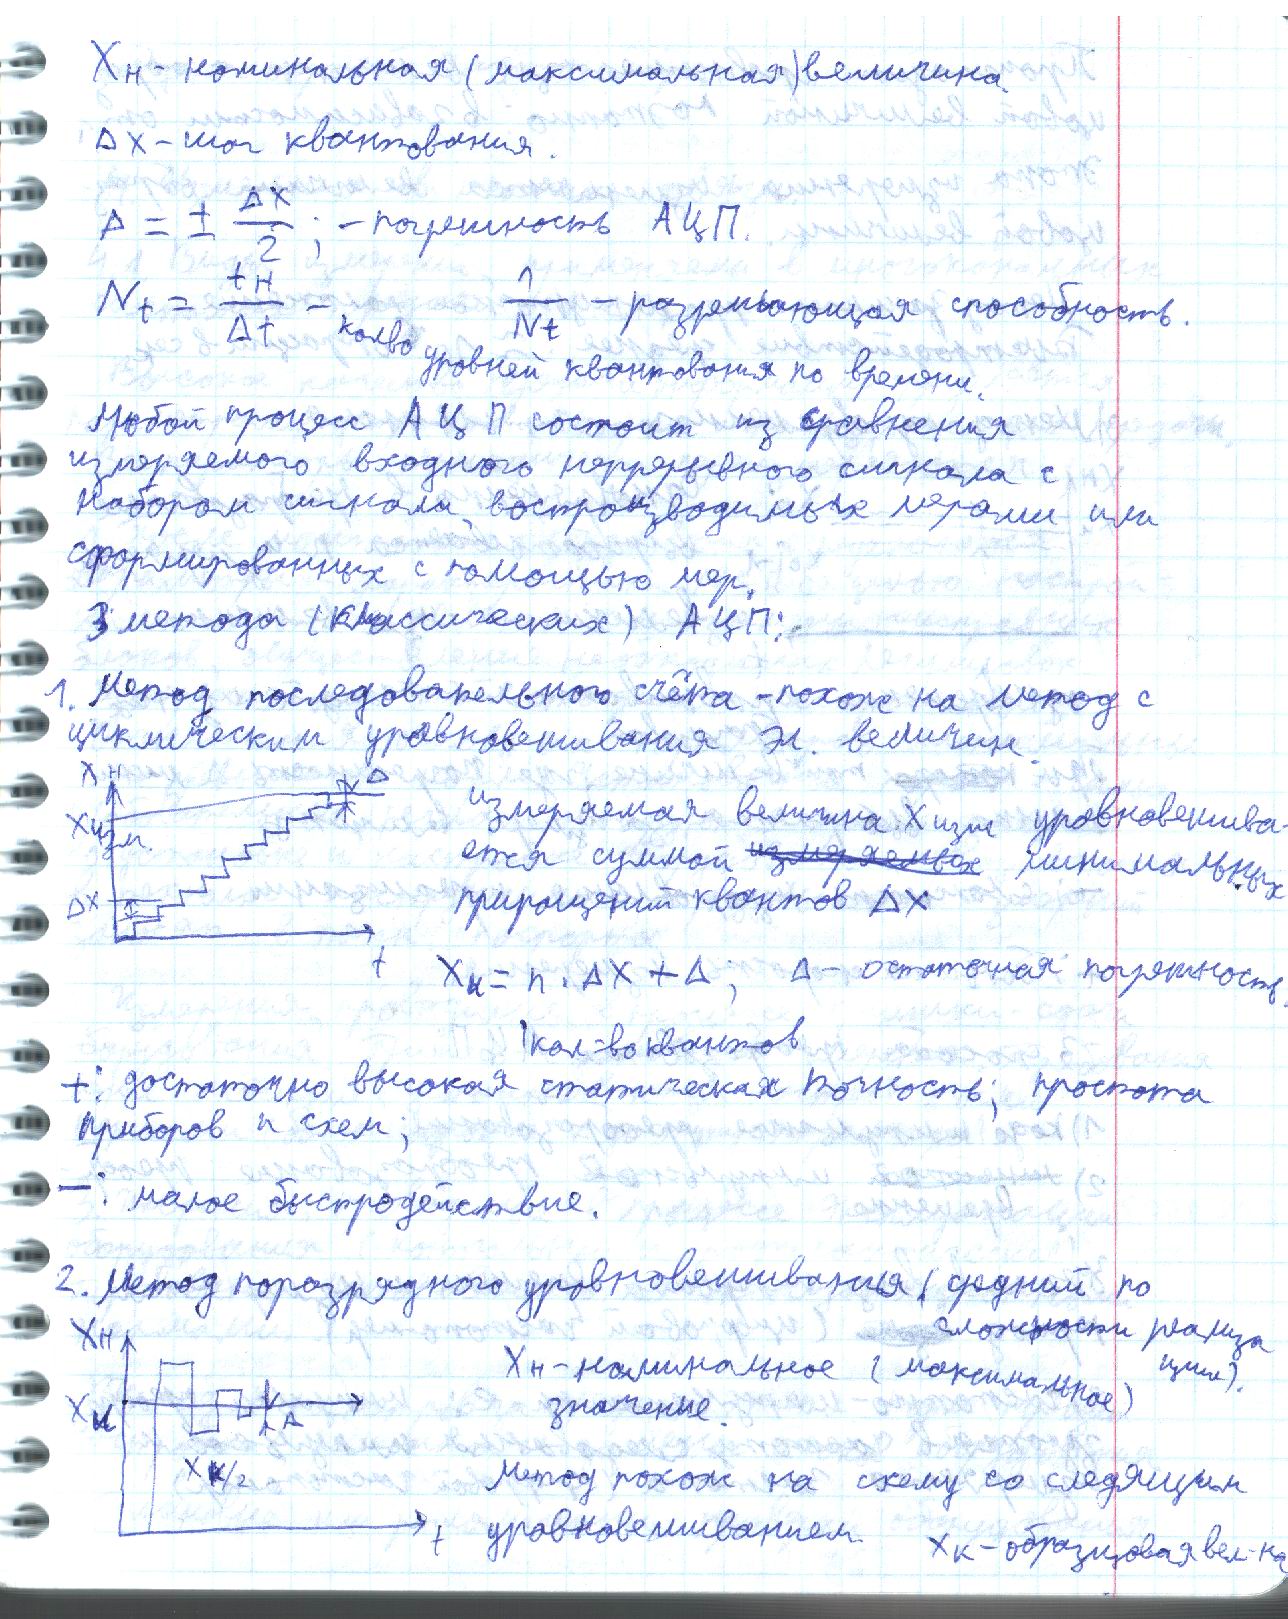 Xн - номинальная (максимальная) величина.
ΔX - шаг квантования.
Δ = ± ΔX/2 ; - погрешность АЦП.
Nt = tн/Δt - кол-во уровней квантования по времени.
1/Nt - разрешающая способность.
Любой процесс АЦП состоит из сравнения
измеряемого входного непрерывного сигнала с
набором сигнала, воспроизводимых мерами или
сформированных с помощью мер.
3 метода (классических) АЦП:
1. Метод последовательного счёта - похож на метод с
циклическим уравновешивания эл. величин.
Xн
Δ
Xизм.
ΔX
t
измеряемая величина Xизм уравновешива-
ется суммой минимальных
приращений квантов ΔX
Xи = n · ΔX + Δ ; Δ - остаточная погрешность.
кол-во квантов
+: достаточно высокая статическая точность; простота
приборов и схем;
-: малое быстродействие.
2. Метод поразрядного уравновешивания (средний по
сложности реализа
ции).
Xн
Xи
Δ
Xк/2
t
Xн - номинальное (максимальное)
значение.
Метод похож на схему со следящим
уравновешиванием.
Xк - образцовая вел-на